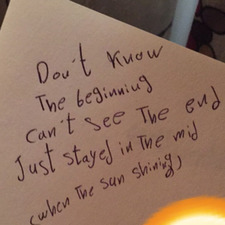 Don't Know
The beginning
can't see The end
Just stayed in The mid
(when The sun shining)